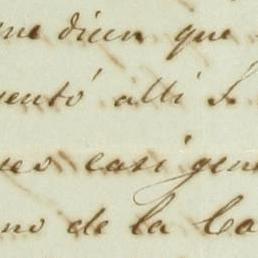 me dicen que
entó alli S.
ues casi gene
no de la Ca